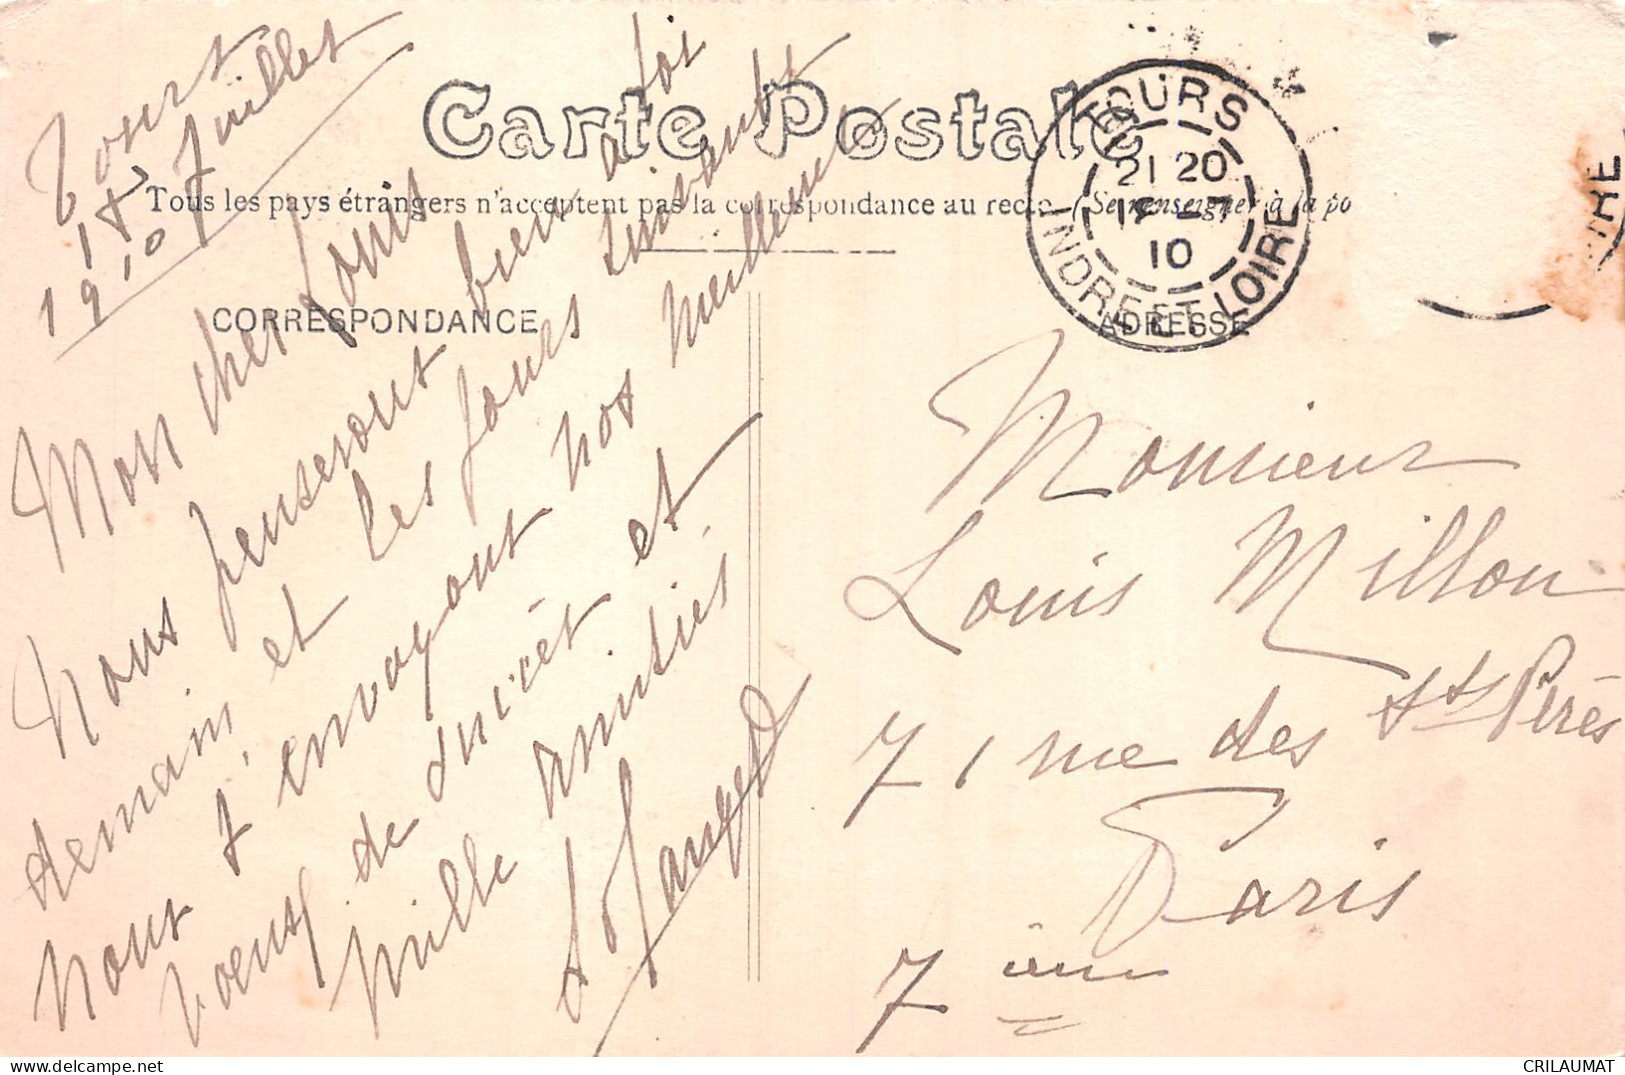 Carte Postale
Tous les pays étrangers n'acceptent pas la correspondance au recto. (Se renseigner à la po
CORRESPONDANCE
ADRESSE
TOURS
21 20
17 - 7
10
INDRE ET LOIRE
IRE
Tours
17 Juillet
1910
Mon cher Louis
Nous penserons bien à toi
demain et les jours suivants
nous t'envoyons nos meilleurs
voeux de succès et
mille amitiés
Monsieur
Louis Millon
71 rue des Sts Pères
Paris
7ème
CRILAUMAT